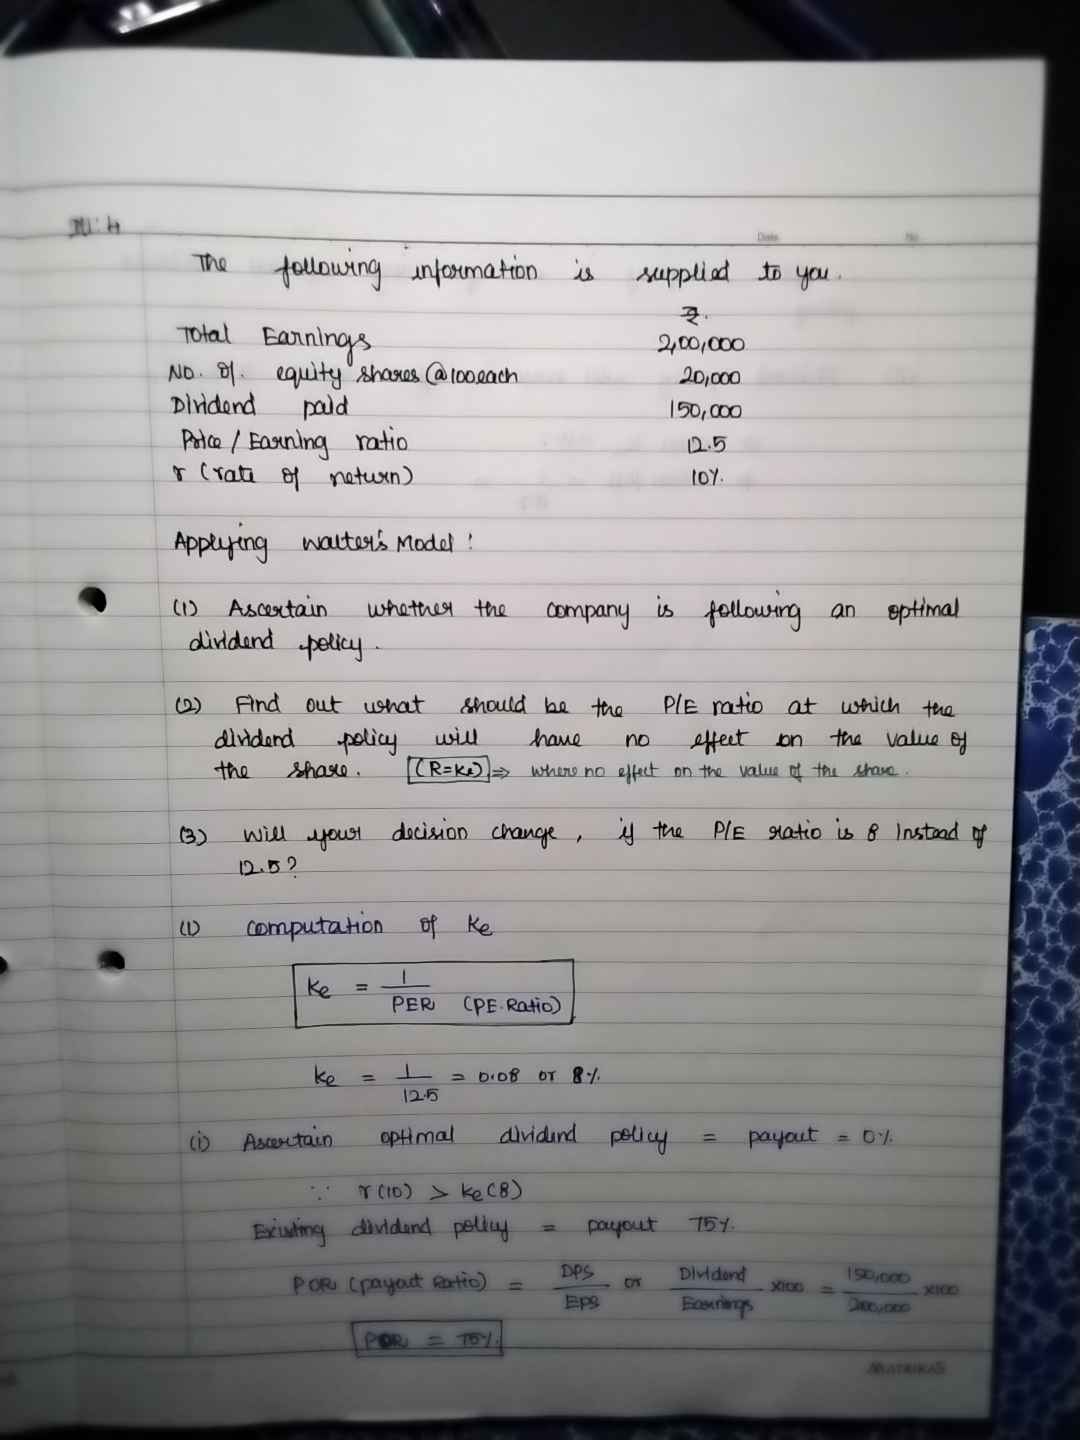 III: 4
Date No
The following information is supplied to you.
₹.
Total Earnings 2,00,000
No. of. equity shares @100each 20,000
Dividend paid 150,000
Price / Earning ratio 12.5
r (rate of return) 10%.
Applying Walter's Model :
(1) Ascertain whether the company is following an optimal
dividend policy.
(2) Find out what should be the P/E ratio at which the
dividend policy will have no effect on the value of
the share. (R=Ke) ⇒ where no effect on the value of the share.
(3) Will your decision change, if the P/E ratio is 8 instead of
12.5?
(1) computation of Ke
Ke = 1 / PER (PE.Ratio)
Ke = 1 / 12.5 = 0.08 or 8%.
(i) Ascertain optimal dividend policy = payout = 0%.
∵ r(10) > Ke(8)
Existing dividend policy = payout 75%.
POR (payout Ratio) = DPS / EPS or Dividend / Earnings x100 = 150,000 / 200,000 x100
POR = 75%.
MATRIKAS